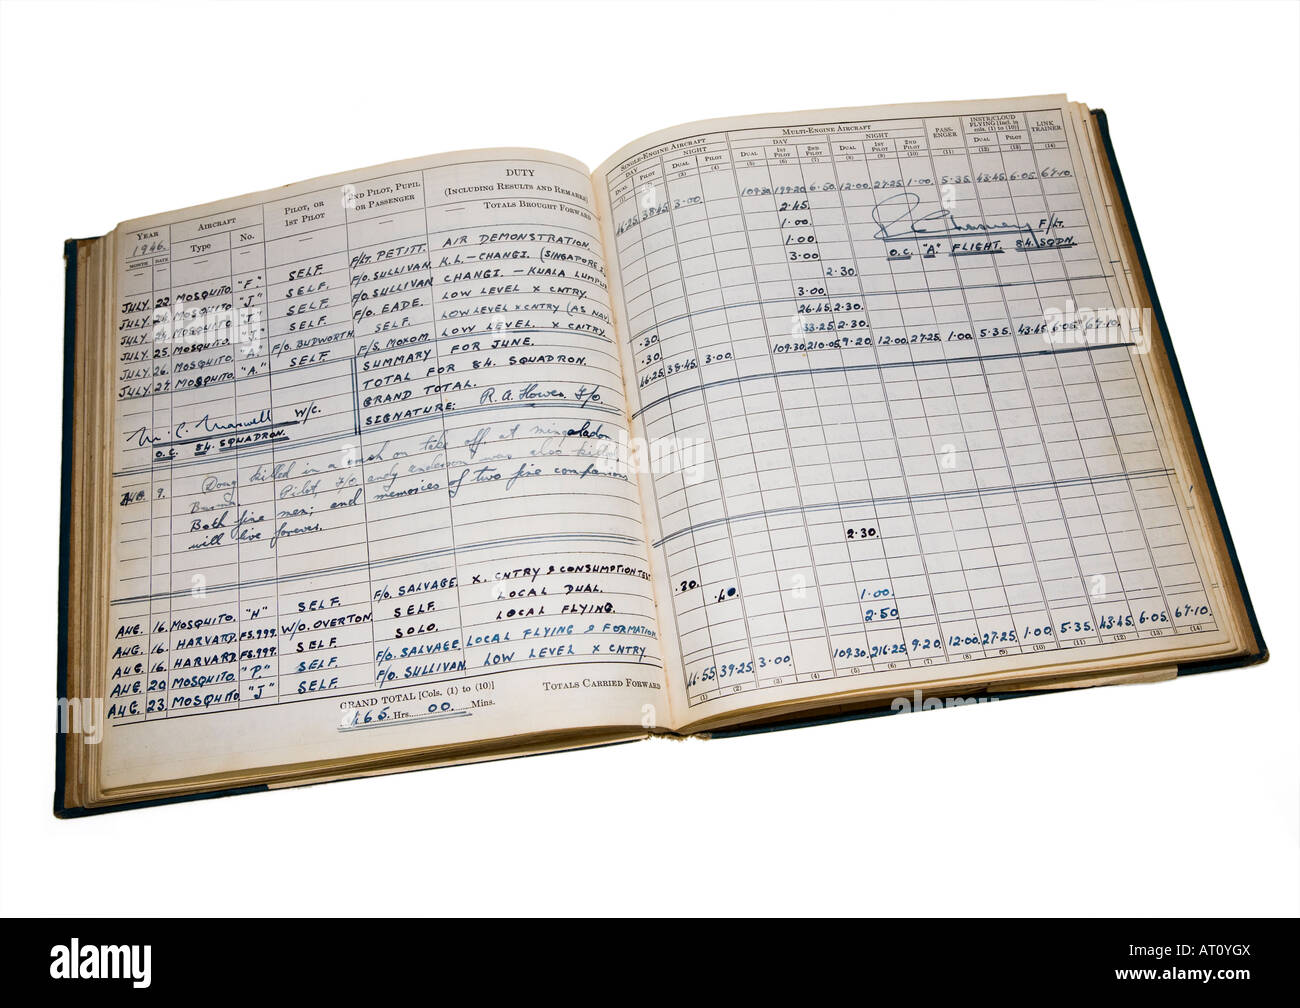 YEAR AIRCRAFT PILOT, OR 1ST PILOT 2ND PILOT, PUPIL OR PASSENGER DUTY (INCLUDING RESULTS AND REMARKS)
1946.
MONTH DATE Type No. — — — TOTALS BROUGHT FORWARD
JULY. 22. MOSQUITO. "F." SELF. F/LT. PETITT. AIR DEMONSTRATION.
JULY. 24. MOSQUITO. "J" SELF. F/O. SULLIVAN. K.L. - CHANGI. (SINGAPORE
JULY. 24. MOSQUITO. "J" SELF. F/O. SULLIVAN CHANGI. - KUALA LUMPUR
JULY. 25. MOSQUITO. "J" SELF. F/O. EADE. LOW LEVEL X CNTRY.
JULY. 26. MOSQUITO. "A." F/O. BUDWORTH SELF. LOW LEVEL X CNTRY (AS NAV)
JULY. 27. MOSQUITO. "A." SELF. F/S. MOXOM. LOW LEVEL. X CNTRY.
SUMMARY FOR JUNE.
TOTAL FOR 84. SQUADRON.
GRAND TOTAL.
SIGNATURE: R. A. Howes. F/O.
M. C. Maxwell W/C.
O.C. 84. SQUADRON.
AUG. 9. Doug killed in a crash on take off at mingaladon
Burma. Pilot, F/O. Andy Anderson was also killed.
Both fine men; and memories of two fine companions
will live forever.
AUG. 16. MOSQUITO. "H" SELF. F/O. SALVAGE. X. CNTRY & CONSUMPTION TEST
AUG. 16. HARVARD. FS.999. W/O. OVERTON. SELF. LOCAL DUAL.
AUG. 16. HARVARD. FS.999. SELF. SOLO. LOCAL FLYING.
AUG. 20. MOSQUITO. "P." SELF. F/O. SALVAGE. LOCAL FLYING & FORMATION
AUG. 23. MOSQUITO "J" SELF. F/O. SULLIVAN. LOW LEVEL X CNTRY
GRAND TOTAL [Cols. (1) to (10)] TOTALS CARRIED FORWARD
165. Hrs. 00. Mins.
SINGLE-ENGINE AIRCRAFT MULTI-ENGINE AIRCRAFT PASSENGER INSTR/CLOUD FLYING [Incl. in cols. (1) to (10)] LINK TRAINER
DAY NIGHT DAY NIGHT
DUAL PILOT DUAL PILOT DUAL 1ST PILOT 2ND PILOT DUAL 1ST PILOT 2ND PILOT DUAL PILOT
(1) (3) (4) (5) (6) (7) (8) (9) (10) (11) (12) (13) (14)
46.25. 38.45. 3.00. 109.30. 199.20. 6.50. 12.00. 27.25. 1.00. 5.35. 43.45. 6.05. 67.10.
2.45.
1.00.
1.00.
3.00
2.30.
3.00.
F/LT.
O.C. "A" FLIGHT. 84. SQDN.
.30. 26.45. 2.30.
.30. 33.25. 2.30.
46.25. 38.45. 3.00. 109.30. 210.05. 9.20. 12.00. 27.25. 1.00. 5.35. 43.45. 6.05. 67.10.
2.30.
.30.
.40.
1.00.
2.50
46.55. 39.25. 3.00. 109.30. 216.25. 9.20. 12.00. 27.25. 1.00. 5.35. 43.45. 6.05. 67.10.
(1) (2) (3) (4) (5) (6) (7) (8) (9) (10) (11) (12) (13) (14)
alamy
www.alamy.com
Image ID: AT0YGX